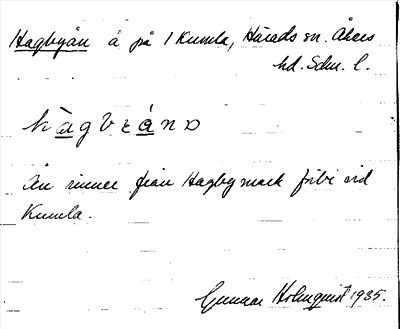 Hagbyån å på 1 Kumla, Härads sn. Åkers
hd. Sdm. l.
hàgbɛánɒ
Ån rinner från Hagby mark förbi vid
Kumla.
Gunnar Holmquist 1935.